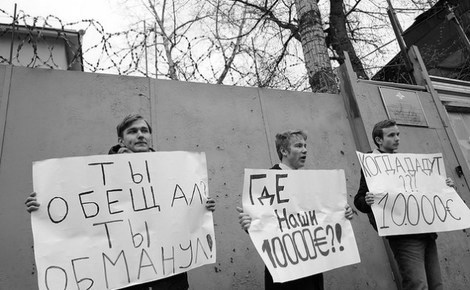 ТЫ
ОБЕЩАЛ!
ТЫ
ОБМАНУЛ!
ГДЕ
НАШИ
10000€?!
КОГДА ДАДУТ
?!!
10000€